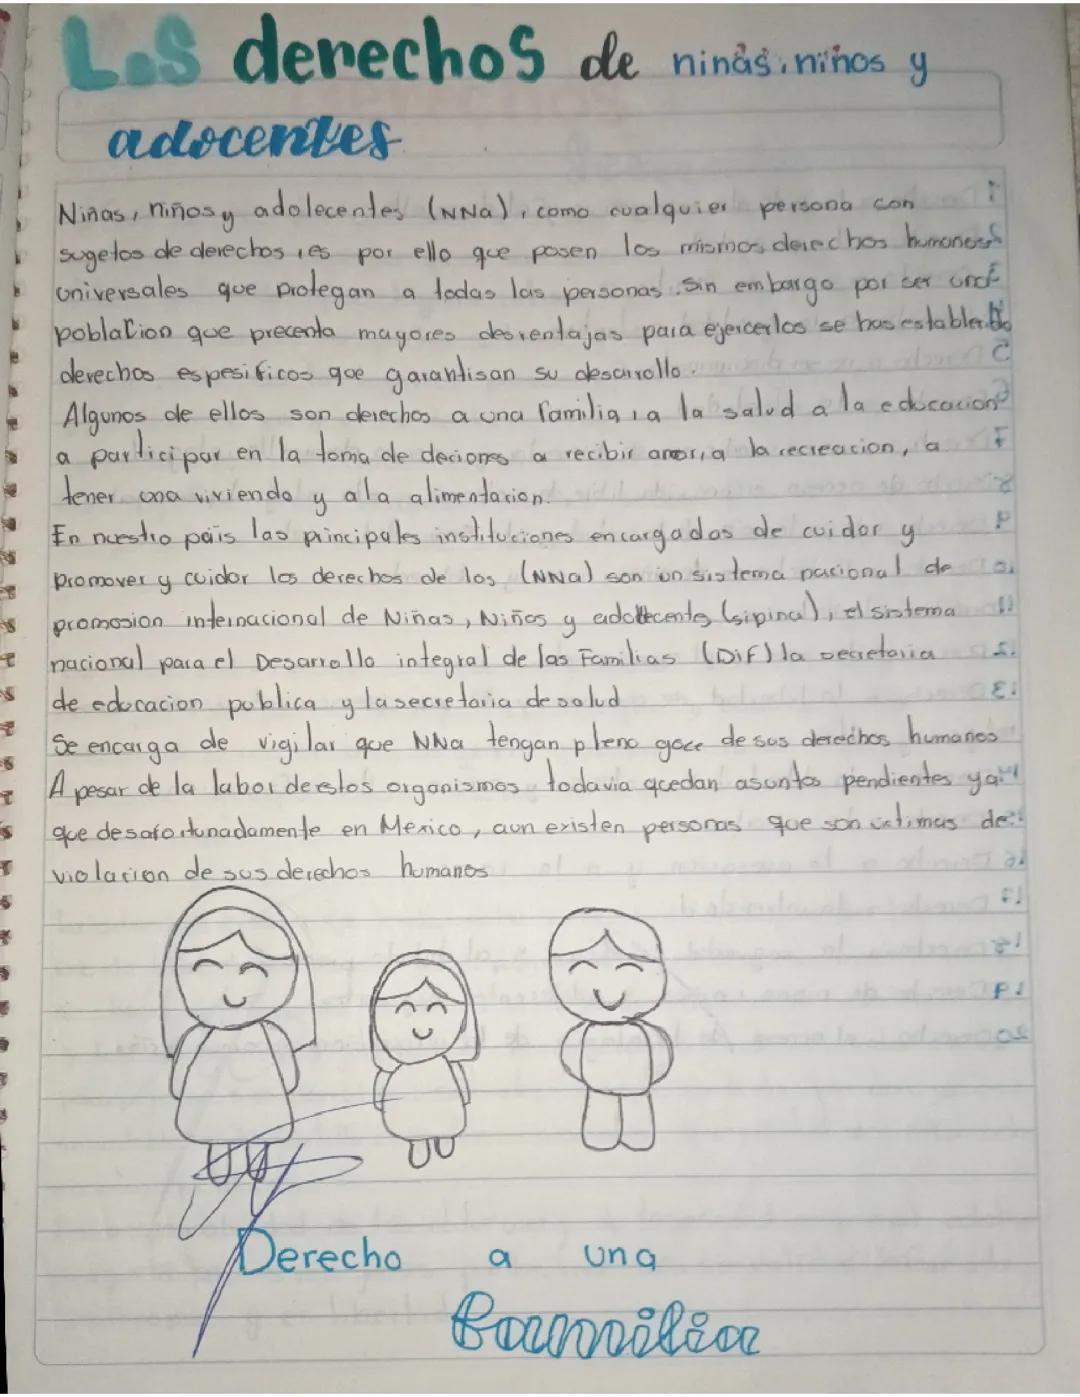 Los derechos de niñas, niños y
adocentes
Niñas, niños y adolecentes (NNa), como cualquier persona con
sugetos de derechos, es por ello que posen los mismos derechos humanos
universales que protegan a todas las personas. Sin embargo por ser una
poblacion que precenta mayores desventajas para ejercerlos se has establecido
derechos espesificos que garantisan su desarrollo.
Algunos de ellos son derechos a una familia, a la salud a la educacion
a participar en la toma de deciones a recibir amor, a la recreacion, a
tener una vivienda y a la alimentacion.
En nuestro país las principales instituciones encargadas de cuidar y
promover y cuidar los derechos de los (NNa) son un sistema nacional de
promosion internacional de Niñas, Niños y adolecentes (sipina), el sistema
nacional para el Desarrollo integral de las Familias (DiF) la secretaria
de educacion publica y la secretaria de salud
Se encarga de vigilar que NNa tengan pleno goce de sus derechos humanos
A pesar de la labor de estos organismos todavia quedan asuntos pendientes ya
que desafortunadamente en Mexico, aun existen personas que son victimas de
violacion de sus derechos humanos
Derecho a una
familia